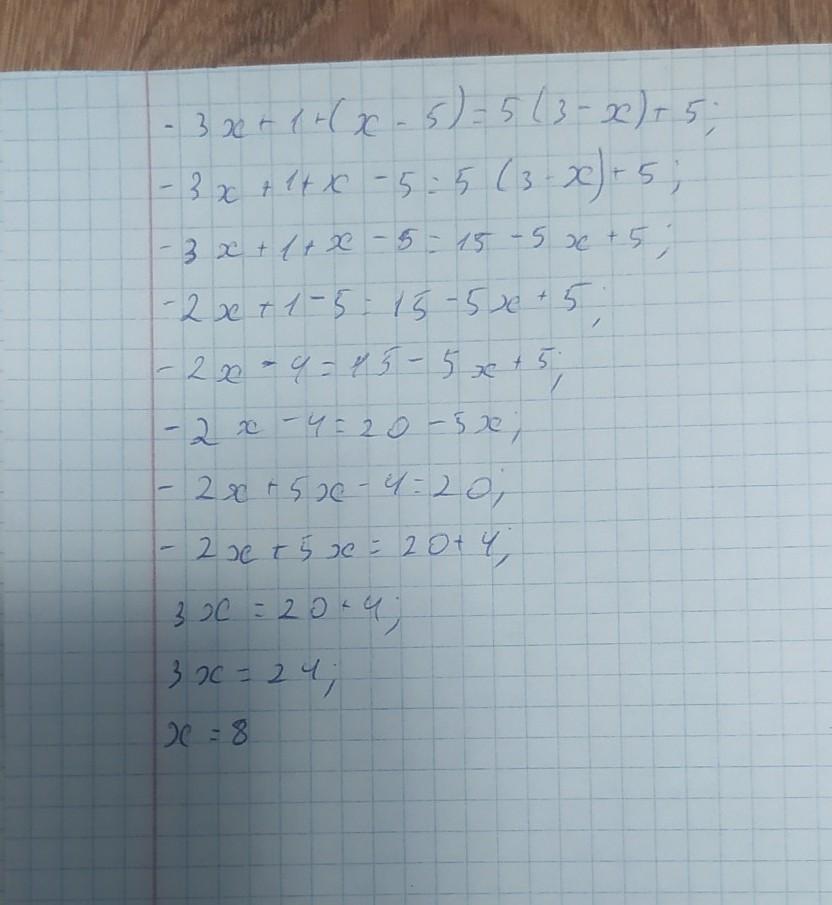 - 3x + 1 + (x - 5) = 5 (3 - x) + 5;
- 3x + 1 + x - 5 = 5 (3 - x) + 5;
- 3x + 1 + x - 5 = 15 - 5x + 5;
- 2x + 1 - 5 = 15 - 5x + 5;
- 2x - 4 = 15 - 5x + 5;
- 2x - 4 = 20 - 5x;
- 2x + 5x - 4 = 20;
- 2x + 5x = 20 + 4;
3x = 20 + 4;
3x = 24;
x = 8